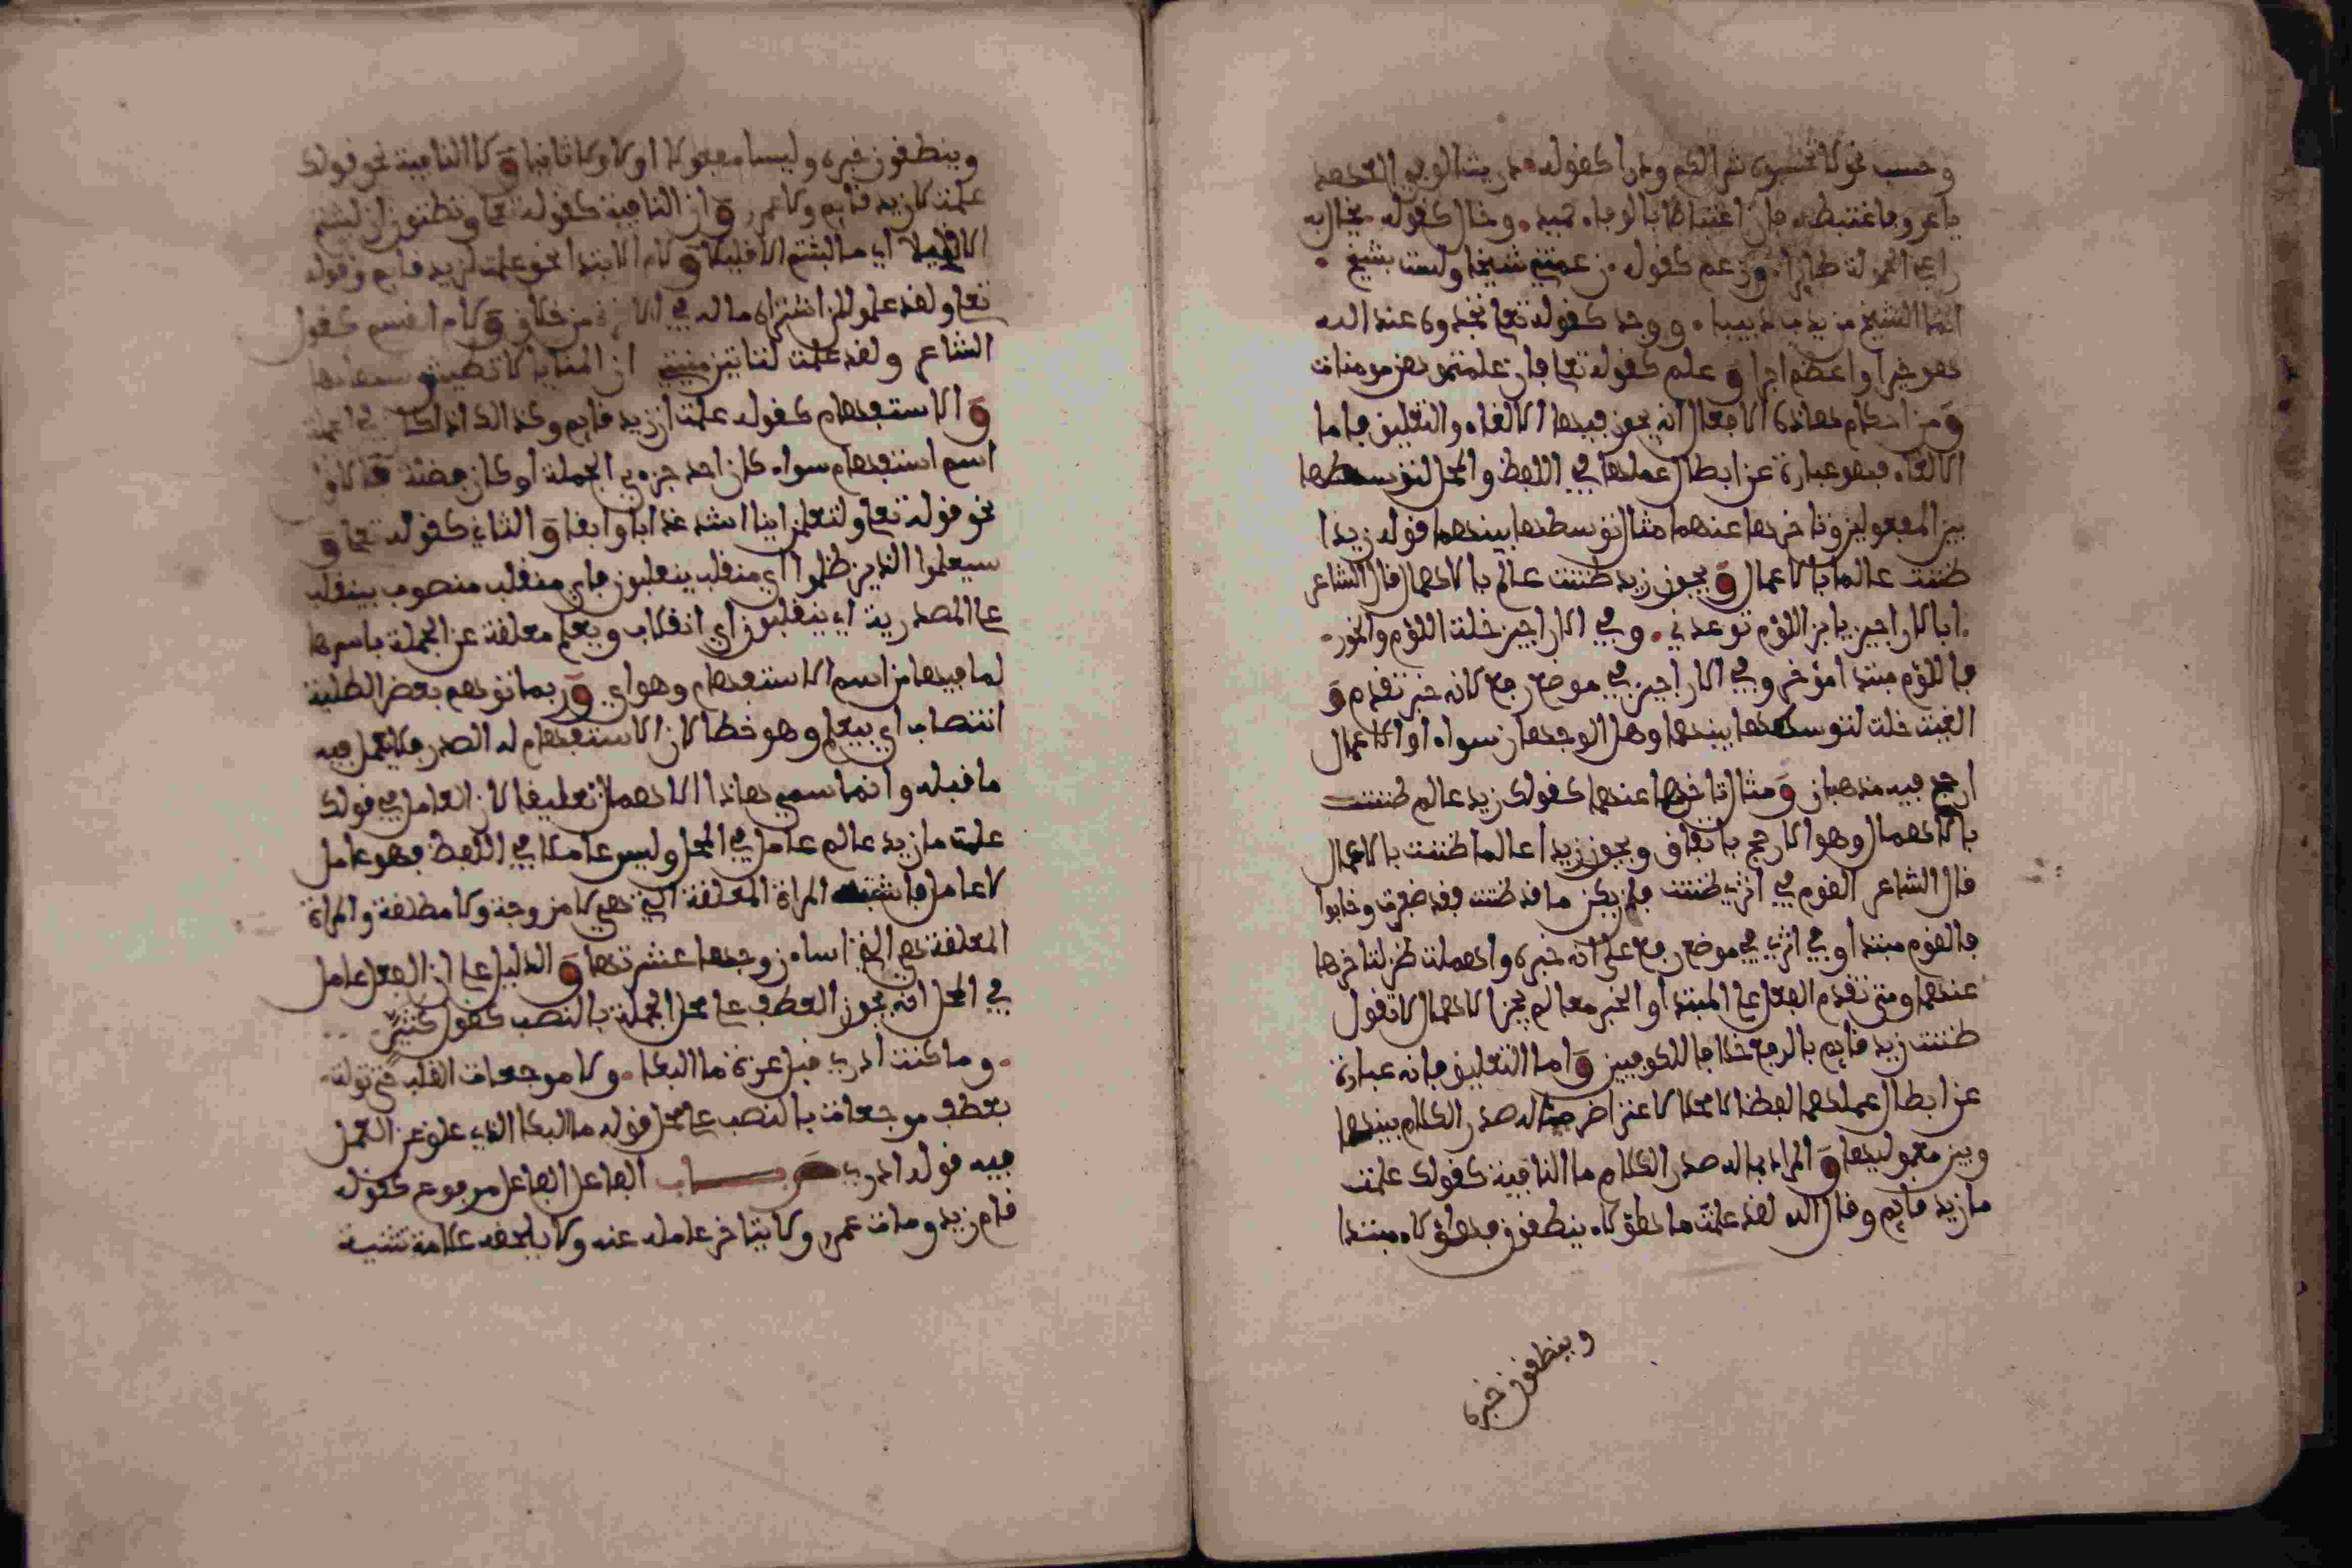 وحسب نحو لا تحسبوه شرا لكم ودرا كقوله دريت الوفي العهد
يا عرو فاغتبط فان اغتباطا بالوفاء حميد وخال كقوله يخال به
راعي الحمولة طايرا وزعم كقوله زعمتني شيخا ولست بشيخ
انما الشيخ من يدب دبيبا ووجد كقوله تعا تجدوه عند الله
هو خيرا واعظم اجرا وعلم كقوله تعا فان علمتموهن مومنات
ومن احكام هاذه الافعال انه يجوز فيها الالغاء والتعليق فاما
الالغاء فهو عبارة عن ابطال عملها في اللفظ والمحل لتوسطها
بين المفعولين وتاخرها عنهما مثال توسطها بينهما قوله زيدا
ظننت عالما بالاعمال ويجوز زيد ظننت عالم بالاهمال قال الشاعر
ابالاراجيز يابن اللؤم توعدني وفي الاراجيز خلت اللؤم والخور
فاللؤم مبتدا مؤخر وفي الاراجيز في موضع رفع لانه خبر تقدم و
الغيت خلت لتوسطها بينهما وهل الوجهان سواء او الاعمال
ارجح فيه مذهبان ومثال تاخرها عنهما كقولك زيد عالم ظننت
بالاهمال وهو الارجح باتفاق ويجوز زيدا عالما ظننت بالاعمال
قال الشاعر القوم في اثري ظننت فان يكن ما قد ظننت فقد ظفرت وخابوا
فالقوم مبتدا وفي اثري في موضع رفع على انه خبره واهملت ظن لتاخرها
عنهما ومتى تقدم الفعل على المبتدا والخبر معا لم يجز الاهمال لا تقول
ظننت زيد قايم بالرفع خلافا للكوفيين واما التعليق فانه عبارة
عن ابطال عملها لفظا لا محلا لاعتراض ماله صدر الكلام بينها
وبين معموليها والمراد بماله صدر الكلام ما النافية كقولك علمت
ما زيد قايم وقال الله لقد علمت ما هؤلاء ينطقون فهؤلاء مبتدا
وينطقون خبره
وينطقون خبره وليسا مفعولا اولا ولا ثانيا ولا النافية نحو قولك
علمت لا زيد قايم ولا عمرو وان النافية كقوله تعا وتظنون ان لبثتم
الا قليلا اي ما لبثتم الا قليلا ولام الابتدا نحو علمت لزيد قايم وقوله
تعا ولقد علموا لمن اشتراه ماله في الاخرة من خلاق ولام القسم كقول
الشاعر ولقد علمت لتاتين منيتي ان المنايا لا تطيش سهامها
والاستفهام كقوله علمت ازيد قايم وكذالك اذا كان في الجملة
اسم استفهام سواء كان احد جزءي الجملة او كان فضلة فالاول
نحو قوله تعا ولتعلمن اينا اشد عذابا وابقا والثاني كقوله تعا و
سيعلموا الذين ظلموا اي منقلب ينقلبون فاي منقلب منصوب بينقلب
على المصدرية اي ينقلبون اي انقلاب ويعلم معلقة عن الجملة باسرها
لما فيها من اسم الاستفهام وهو اي وربما توهم بعض الطلبة
انتصاب اي بيعلم وهو خطا لان الاستفهام له الصدر فلا يعمل فيه
ما قبله وانما سمي هاذا الاهمال تعليقا لان العامل في قولك
علمت ما زيد عالم عامل في المحل وليس عاملا في اللفظ فهو عامل
لا عامل فاشبه المراة المعلقة التي هي لا مزوجة ولا مطلقة والمراة
المعلقة هي التي اساء زوجها عشرتها والدليل على ان الفعل عامل
في المحل انه يجوز العطف على محل الجملة بالنصب كقول كثير
وما كنت ادري قبل عزة ما البكا ولا موجعات القلب حتى تولت
بعطف موجعات بالنصب على محل قوله ما البكا الذي علق عن العمل
فيه قوله ادري ص باب الفاعل الفاعل مرفوع كقوله
قام زيد ومات عمرو ولا يتاخر عامله عنه ولا يلحقه علامة تثنية